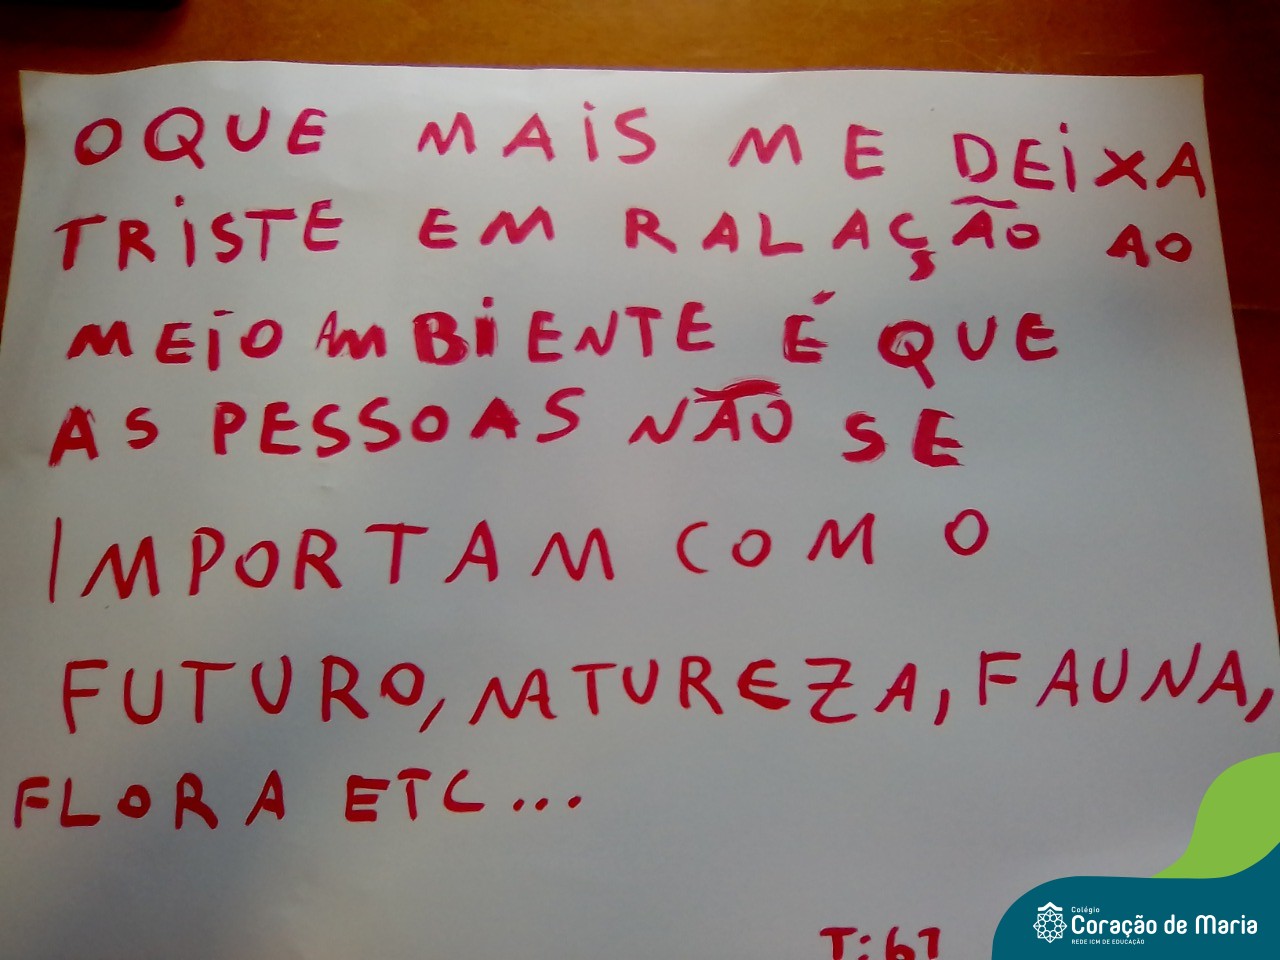 OQUE MAiS ME DEiXA
TRiSTE EM RALAÇÃO AO
MEiO AMBiENTE É QUE
AS PESSOAS NÃO SE
IMPORTAM COM O
FUTURO, NATUREZA, FAUNA,
FLORA ETC...
T: 67
Colégio
Coração de Maria
REDE ICM DE EDUCAÇÃO